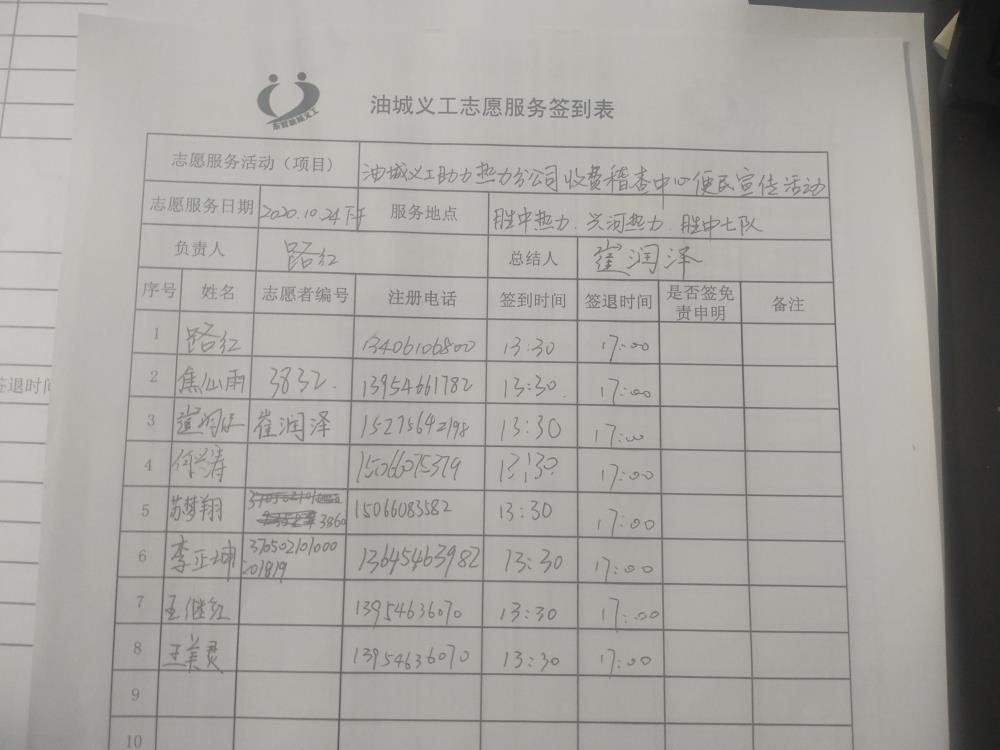 东营油城义工
油城义工志愿服务签到表
志愿服务活动（项目） 油城义工助力热力分公司收费稽查中心便民宣传活动
志愿服务日期 2020.10.24下午 服务地点 胜中热力．兴河热力．胜中七队
负责人 路红 总结人 崔润泽
序号 姓名 志愿者编号 注册电话 签到时间 签退时间 是否签免责申明 备注
1 路红 13406106800 13:30 17:00
2 焦仙雨 3832. 13954661782 13:30. 17:00
3 崔润泽 崔润泽 15275642198 13:30 17:00
4 何兴涛 15066075379 13:30 17:00
5 苏梦翔 3860 15066083582 13:30 17:00
6 李正坤 37050210100001819 13645463982 13:30 17:00
7 王继红 13954636070 13:30 17:00
8 王美灵 13954636070 13:30 17:00
9
10
签退时间